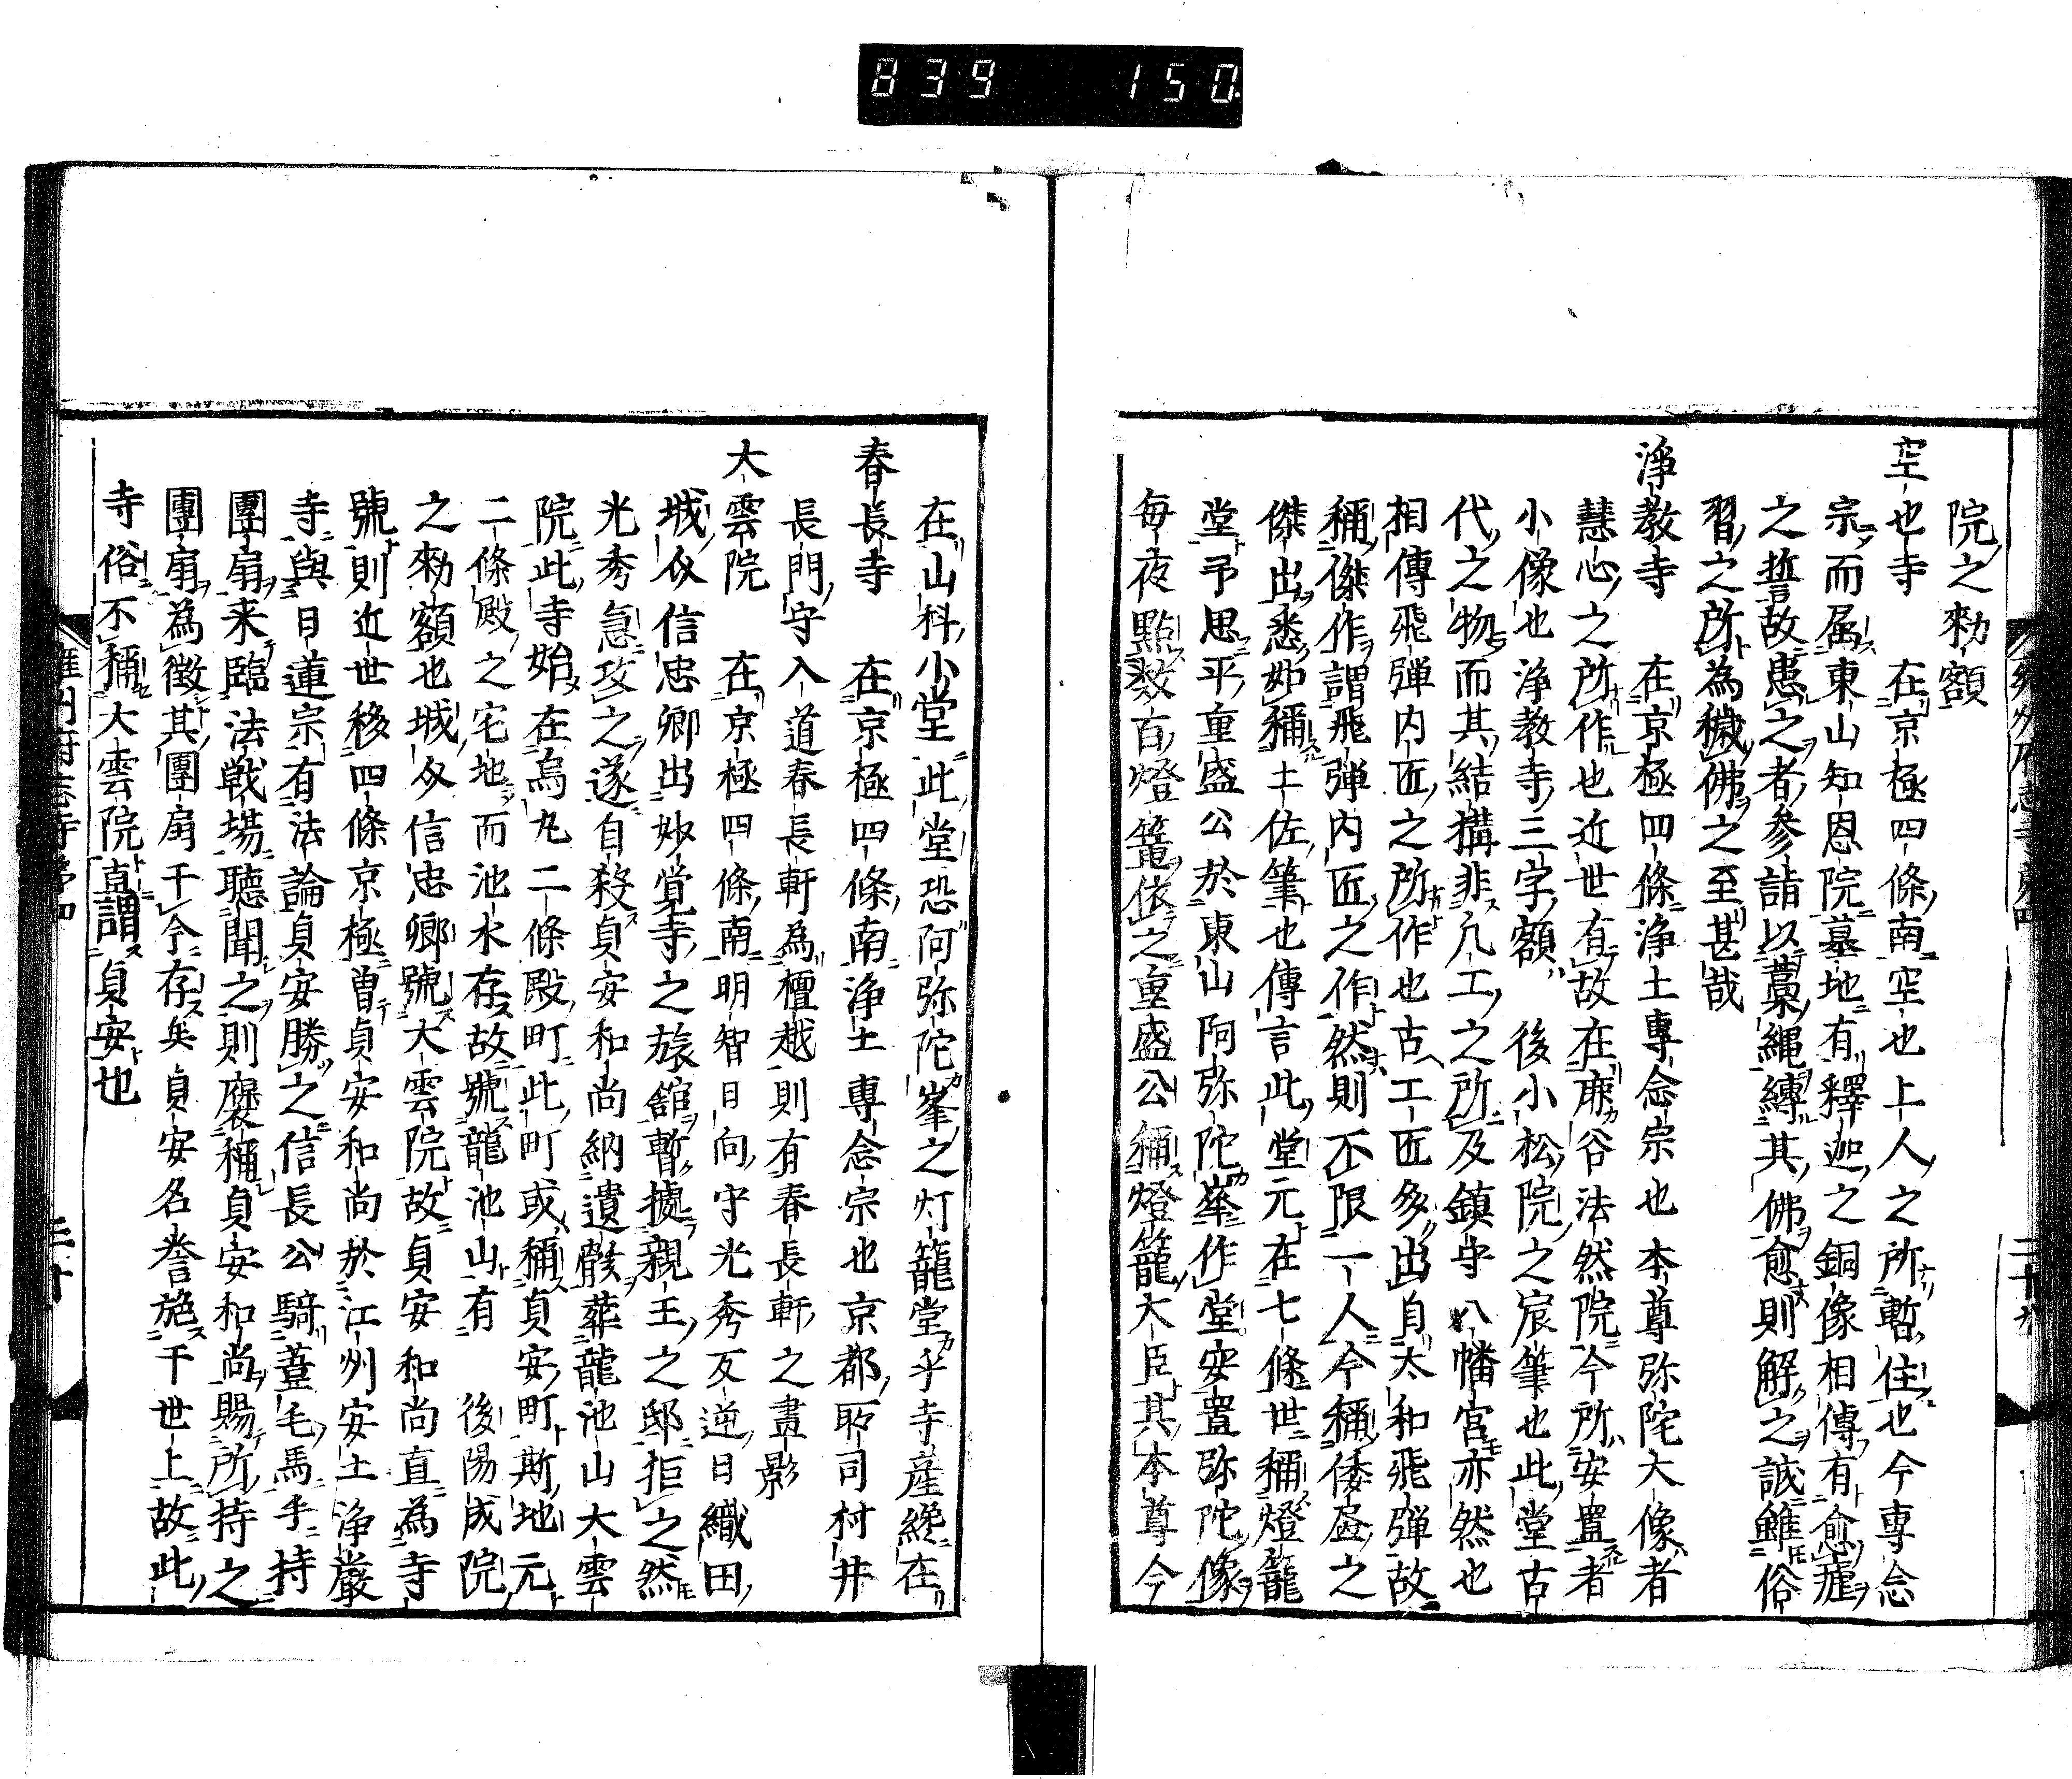 839 150
院之勅額
空也寺 在京極四條南空也上人之所暫住也今專念
宗而属東山知恩院墓地有釋迦之銅像相傳有愈瘧
之誓故患之者參詣以藁縄縛其佛愈則解之誠雖俗
習之所為穢佛之至甚哉
淨教寺 在京極四條浄土專念宗也本尊弥陀大像者
慧心之所作也近世有故在麻谷法然院今所安置者
小像也浄教寺三字額 後小松院之宸筆也此堂古
代之物而其結搆非凡工之所及鎮守八幡宮亦然也
相傳飛弾内匠之所作也古工匠多出自太和飛弾故
稱傑作謂飛弾内匠之作然則不限一人今稱倭𦘕之
傑出悉如稱土佐筆也傳言此堂元在七條世稱燈籠
堂予思平重盛公於東山阿弥陀峯作堂安置弥陀像
每夜點数百燈篭依之重盛公稱燈籠大臣其本尊今
在山科小堂此堂恐阿弥陀峯之灯籠堂乎寺産纔在
春長寺 在京極四條南浄土專念宗也京都所司村井
長門守入道春長軒為檀越則有春長軒之畫影
大雲院 在京極四條南明智日向守光秀反逆日織田
城介信忠卿出妙覚寺之旅舘暫據親王之邸拒之然
光秀急攻之遂自殺貞安和尚納遺骸葬龍池山大雲
院此寺始在烏丸二條殿町此町或稱貞安町斯地元
二條殿之宅地而池水存故號龍池山有 後陽成院
之勅額也城介信忠卿號大雲院故貞安和尚直為寺
號則近世移四條京極曽貞安和尚於江州安土浄厳
寺與日蓮宗有法論貞安勝之信長公騎葦毛馬手持
團扇来臨法戦場聽聞之則褒稱貞安和尚賜所持之
團扇為徴其團扇于今存矣貞安名誉施于世上故此
寺俗不稱大雲院直謂貞安也